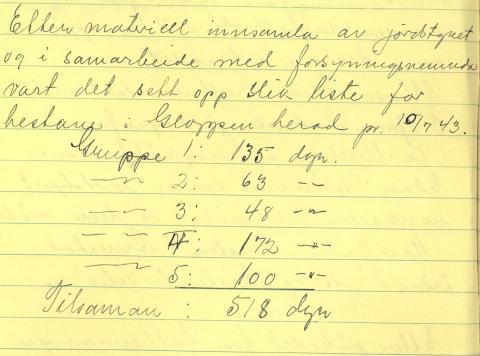 Etter matriell innsamla av jordstyret
og i samarbeide med forsyningsnemnda
vart det sett opp slik liste for
hestane i Gloppen herad pr. 10/7 43.
Gruppe 1: 135 dyr.
—"— 2: 63 —"—
—"— 3: 48 —"—
—"— 4: 172 —"—
—"— 5: 100 —"—
Tilsaman: 518 dyr